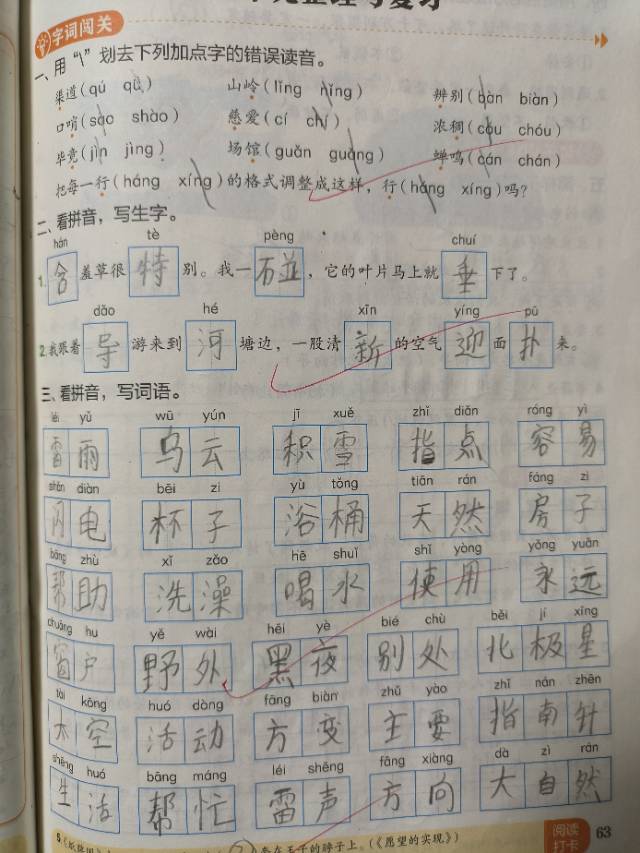 字词闯关
一、用“\”划去下列加点字的错误读音。
渠道(qú qǔ) 山岭(lǐng nǐng) 辨别(bàn biàn)
口哨(sào shào) 慈爱(cí chí) 浓稠(cóu chóu)
毕竟(jìn jìng) 场馆(guǎn guǎng) 蝉鸣(cán chán)
把每一行(háng xíng)的格式调整成这样，行(háng xíng)吗？
二、看拼音，写生字。
hán tè pèng chuí
1.含羞草很特别。我一碰，它的叶片马上就垂下了。
dǎo hé xīn yíng pū
2.我跟着导游来到河塘边，一股清新的空气迎面扑来。
三、看拼音，写词语。
léi yǔ wū yún jī xuě zhǐ diǎn róng yì
雷雨 乌云 积雪 指点 容易
shǎn diàn bēi zi yù tǒng tiān rán fáng zi
闪电 杯子 浴桶 天然 房子
bāng zhù xǐ zǎo hē shuǐ shǐ yòng yǒng yuǎn
帮助 洗澡 喝水 使用 永远
chuāng hu yě wài hēi yè bié chù běi jí xīng
窗户 野外 黑夜 别处 北极星
tài kōng huó dòng fāng biàn zhǔ yào zhǐ nán zhēn
太空 活动 方变 主要 指南针
shēng huó bāng máng léi shēng fāng xiàng dà zì rán
生活 帮忙 雷声 方向 大自然
在王子的脖子上。(《愿望的实现》)
阅读
打卡
63